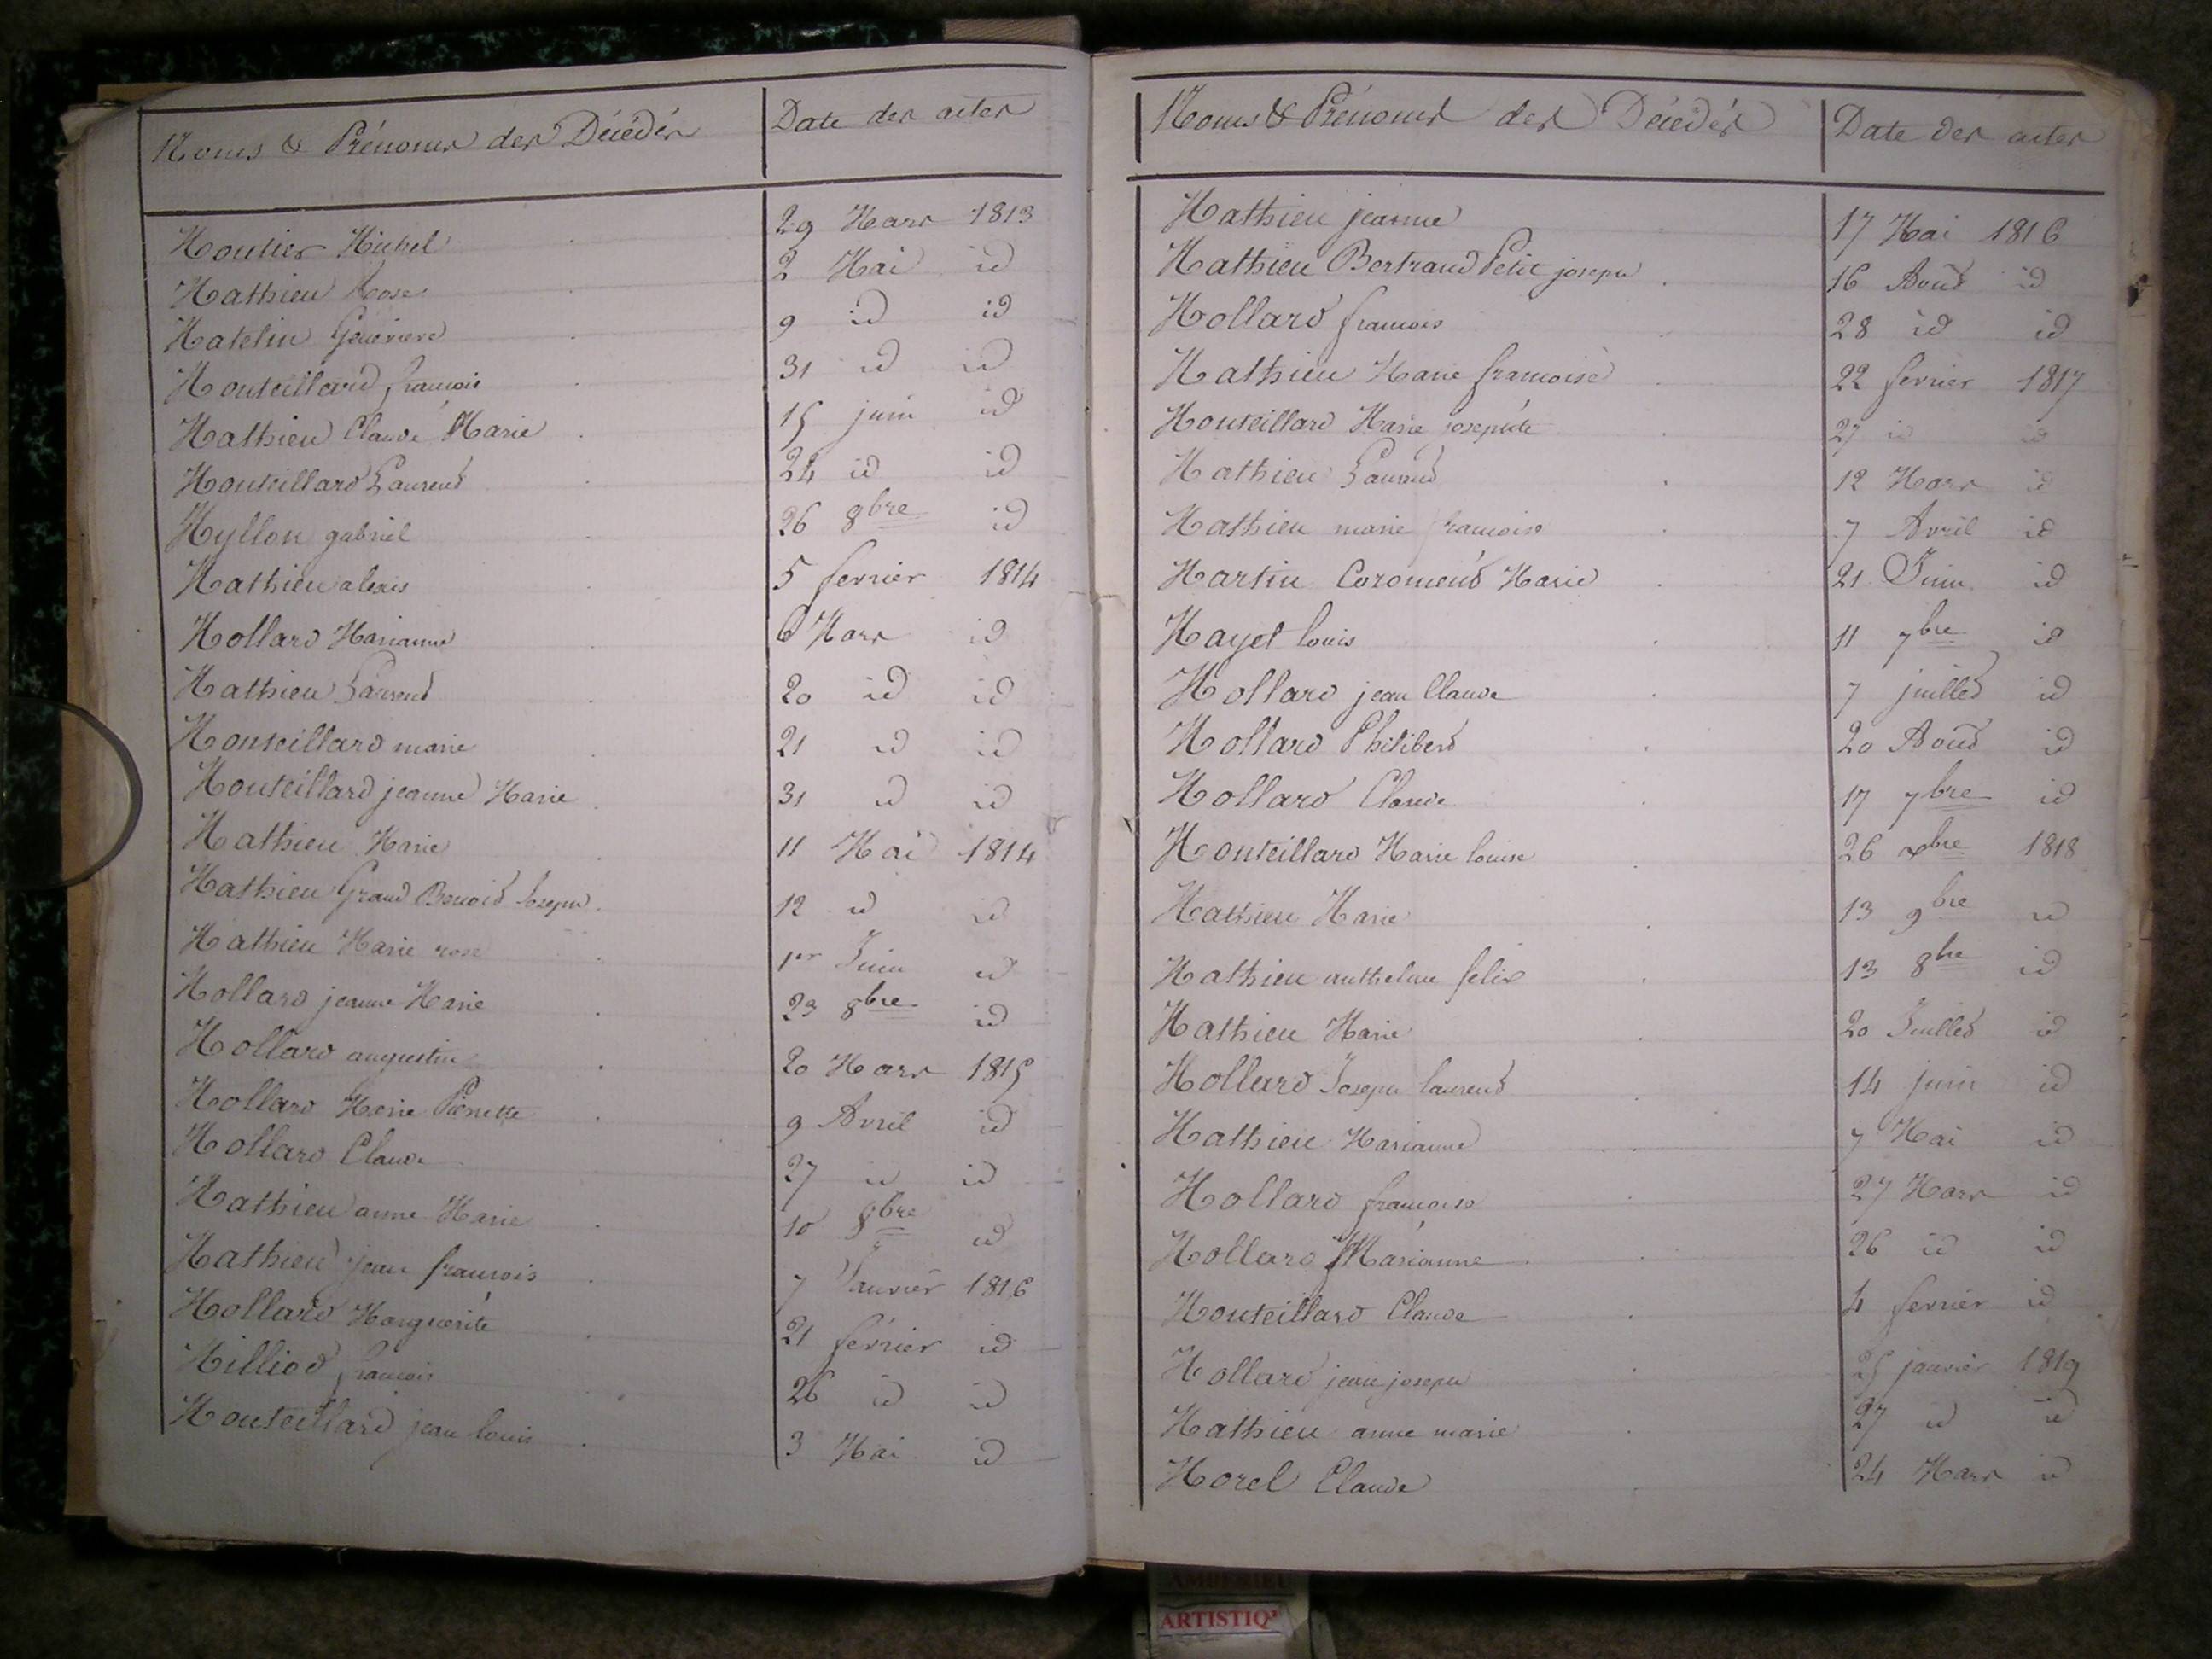 Noms & Prénoms des Décédés Date des actes
Moutier Michel 29 Mars 1813
Mathieu Rose 2 Mai id
Matelin Genevieve 9 id id
Monteillard francois 31 id id
Mathieu Claude Marie 15 juin id
Monteillard Laurend 24 id id
Myllon gabriel 26 8bre id
Mathieu alexis 5 fevrier 1814
Mollard Marianne 6 Mars id
Mathieu Laurend 20 id id
Monteillard marie 21 id id
Monteillard jeanne Marie 31 id id
Mathieu Marie 11 Mai 1814
Mathieu Grand Benoid Joseph 12 id id
Mathieu Marie rose 1er Juin id
Mollard jeanne Marie 23 8bre id
Mollard augustin 20 Mars 1815
Mollard Marie Pierrette 9 Avril id
Mollard Claude 27 id id
Mathieu anne Marie 10 8bre id
Mathieu jean francois 7 Janvier 1816
Mollard Marguerite 21 février id
Milliod francois 26 id id
Monteillard jean louis 3 Mai id
Noms & Prénoms des Décédés Date des actes
Mathieu jeanne 17 Mai 1816
Mathieu Bertrand Petit joseph 16 Aoud id
Mollard francois 28 id id
Mathieu Marie francoise 22 fevrier 1817
Monteillard Marie josephte 27 id id
Mathieu Laurend 12 Mars id
Mathieu marie francoise 7 Avril id
Martin Coromend Marie 21 Juin id
Mayet louis 11 7bre id
Mollard jean Claude 7 juilled id
Mollard Philiberd 20 Aoud id
Mollard Claude 17 7bre id
Monteillard Marie louise 26 xbre 1818
Mathieu Marie 13 9bre id
Mathieu anthelme felix 13 8bre id
Mathieu Marie 20 Juilled id
Mollard Joseph laurend 14 juin id
Mathieu Marianne 7 Mai id
Mollard francoise 27 Mars id
Mollard Marianne 26 id id
Monteillard Claude 4 fevrier id
Mollard jean joseph 25 janvier 1819
Mathieu anne marie 27 id id
Morel Claude 24 Mars id
AMBERIEU
ARTISTIQ